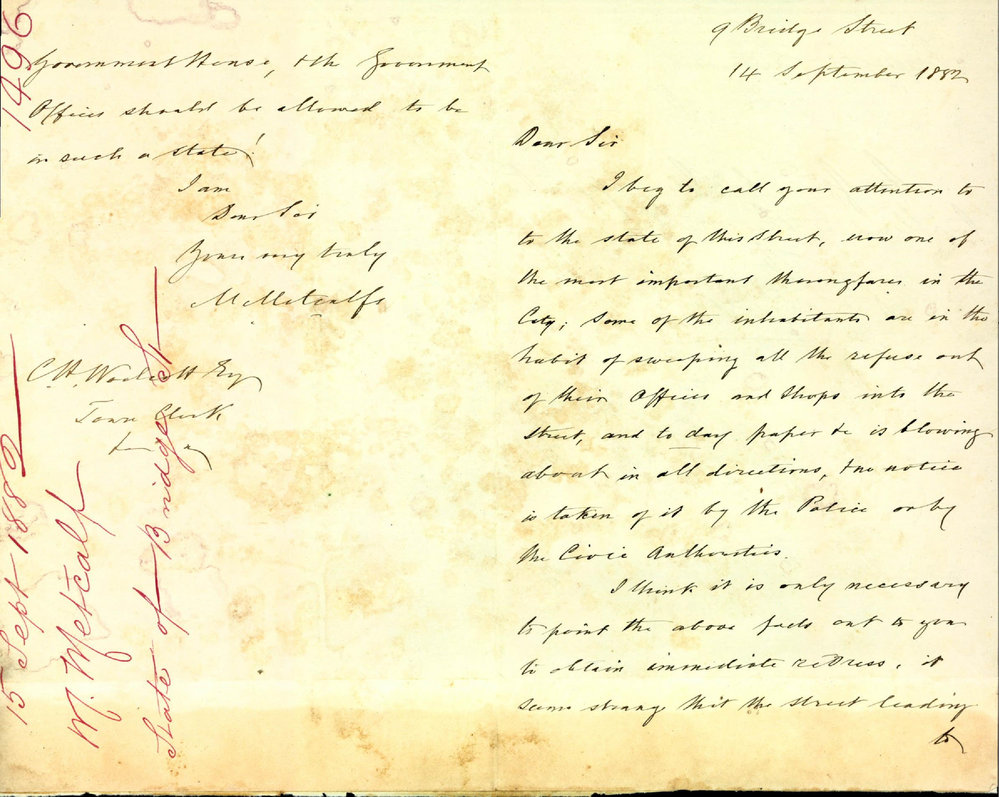 9 Bridge Street
14 September 1882
Dear Sir
I beg to call your attention to
to the state of this Street, now one of
the most important thoroughfares in the
City; some of the inhabitants are in the
habit of sweeping all the refuse out
of their Offices and Shops into the
street, and to day paper &c is blowing
about in all directions, & no notice
is taken of it by the Police or by
the Civic Authorities.
I think it is only necessary
to point the above facts out to you
to obtain immediate redress, it
seems strange that the street leading
to
Government House, & the Government
Offices should be allowed to be
in such a state!
I am
Dear Sir
Yours very truly
M Metcalfe
C.H. Woolcott Esq
Town Clerk
1496
15 Sept 1882
M. Metcalf
State of Bridge St